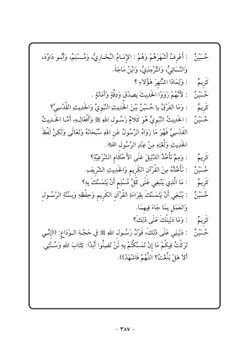 حُسَيْنٌ : أَعْرِفُ أَشْهَرَهُمْ وَهُمْ : الإِمَامُ البُخَارِيُّ، وَمُسْلِمٌ، وَأَبُو دَاوُدَ،
وَالنَّسَائِيُّ، وَالتِّرْمِذِيُّ، وَابْنُ مَاجَةَ.
كَرِيمٌ : وَلِمَاذَا اشْتَهَرَ هَؤُلَاءِ ؟
حُسَيْنٌ : لِأَنَّهُمْ رَوَوُا الحَدِيثَ بِصِدْقٍ وَدِقَّةٍ وَأَمَانَةٍ .
كَرِيمٌ : وَمَا الفَرْقُ يَا حُسَيْنُ بَيْنَ الحَدِيثِ النَّبَوِيِّ وَالحَدِيثِ القُدْسِيِّ؟
حُسَيْنٌ : الحَدِيثُ النَّبَوِيُّ هُوَ كَلَامُ رَسُولِ اللهِ ﷺ وَأَفْعَالِهِ، أَمَّا الحَدِيثُ
القُدْسِيُّ فَهُوَ مَا رَوَاهُ الرَّسُولُ عَنِ اللهِ سُبْحَانَهُ وَتَعَالَى وَلَكِنْ لَفْظُ
الحَدِيثِ وَلُغَتُهُ مِنْ عِنْدِ الرَّسُولِ ﷺ.
كَرِيمٌ : وَمِمَّ نَأْخُذُ الدَّلِيلَ عَلَى الأَحْكَامِ الشَّرْعِيَّةِ؟
حُسَيْنٌ : نَأْخُذُهُ مِنَ القُرْآنِ الكَرِيمِ وَالحَدِيثِ الشَّرِيفِ.
كَرِيمٌ : مَا الَّذِي يَنْبَغِي عَلَى كُلِّ مُسْلِمٍ أَنْ يَتَمَسَّكَ بِهِ؟
حُسَيْنٌ : يَنْبَغِي أَنْ يَتَمَسَّكَ بِقِرَاءَةِ القُرْآنِ الكَرِيمِ وَحِفْظِهِ وَبِسُنَّةِ الرَّسُولِ
وَالعَمَلِ بِمَا جَاءَ فِيهِمَا.
كَرِيمٌ : وَمَا دَلِيلُكَ عَلَى ذَلِكَ؟
حُسَيْنٌ : دَلِيلِي عَلَى ذَلِكَ، قَوْلُ رَسُولِ اللهِ ﷺ فِي حَجَّةِ الوَدَاعِ: ((إِنِّي
تَرَكْتُ فِيكُمْ مَا إِنْ تَمَسَّكْتُمْ بِهِ لَنْ تَضِلُّوا أَبَدًا: كِتَابَ اللهِ وَسُنَّتِي.
أَلَا هَلْ بَلَّغْتُ؟ اللَّهُمَّ فَاشْهَدْ)).
- ٣٨٧ -